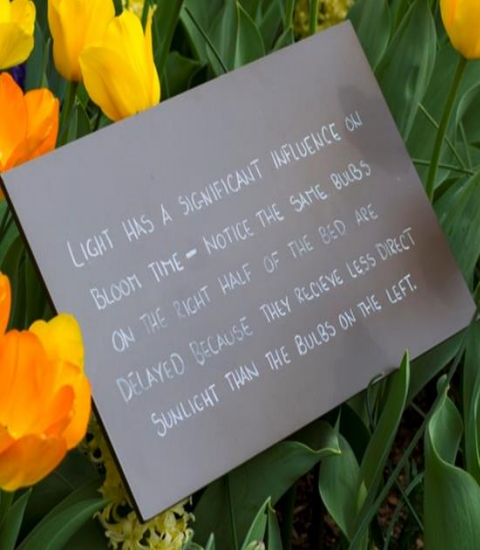 LIGHT HAS A SIGNIFICANT INFLUENCE ON
BLOOM TIME - NOTICE THE SAME BULBS
ON THE RIGHT HALF OF THE BED ARE
DELAYED BECAUSE THEY RECIEVE LESS DIRECT
SUNLIGHT THAN THE BULBS ON THE LEFT.